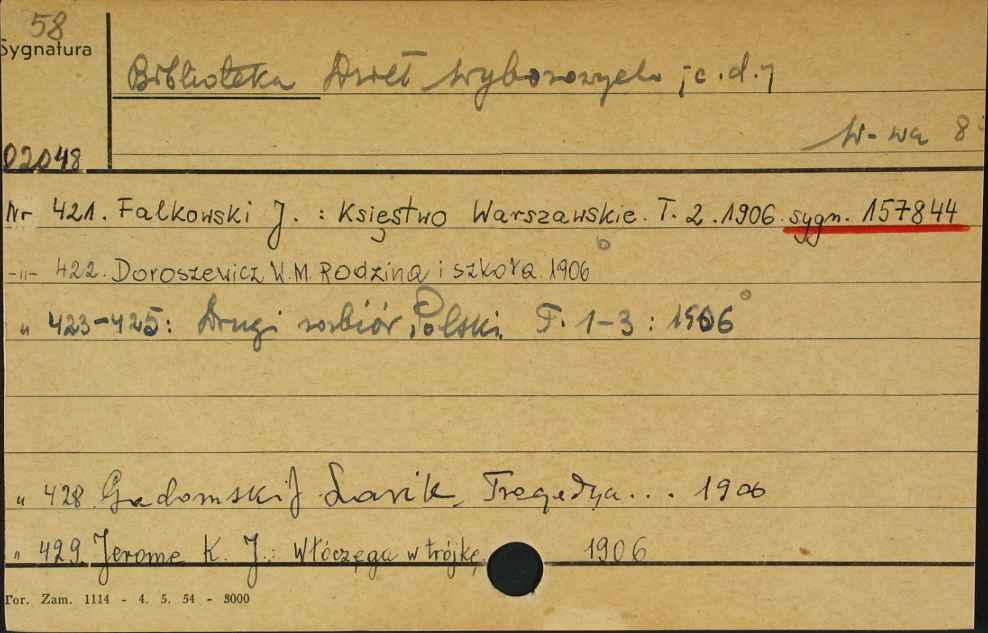 58
Sygnatura
Biblioteka Dzieł Wyborowych ; c.d. ;
W-wa 8°
02048
Nr 421. Falkowski J. : Księstwo Warszawskie. T. 2. 1906. sygn. 157844
-"- 422. Doroszewicz W. M. Rodzina i szkoła. 1906
" 423-425: Drugi rozbiór Polski. T. 1-3 : 1906
" 428 Gadomski J Larik, Tragedya... 1906
" 429. Jerome K. J.: Włóczęga w trójkę 1906
Tor. Zam. 1114 - 4. 5. 54 - 8000